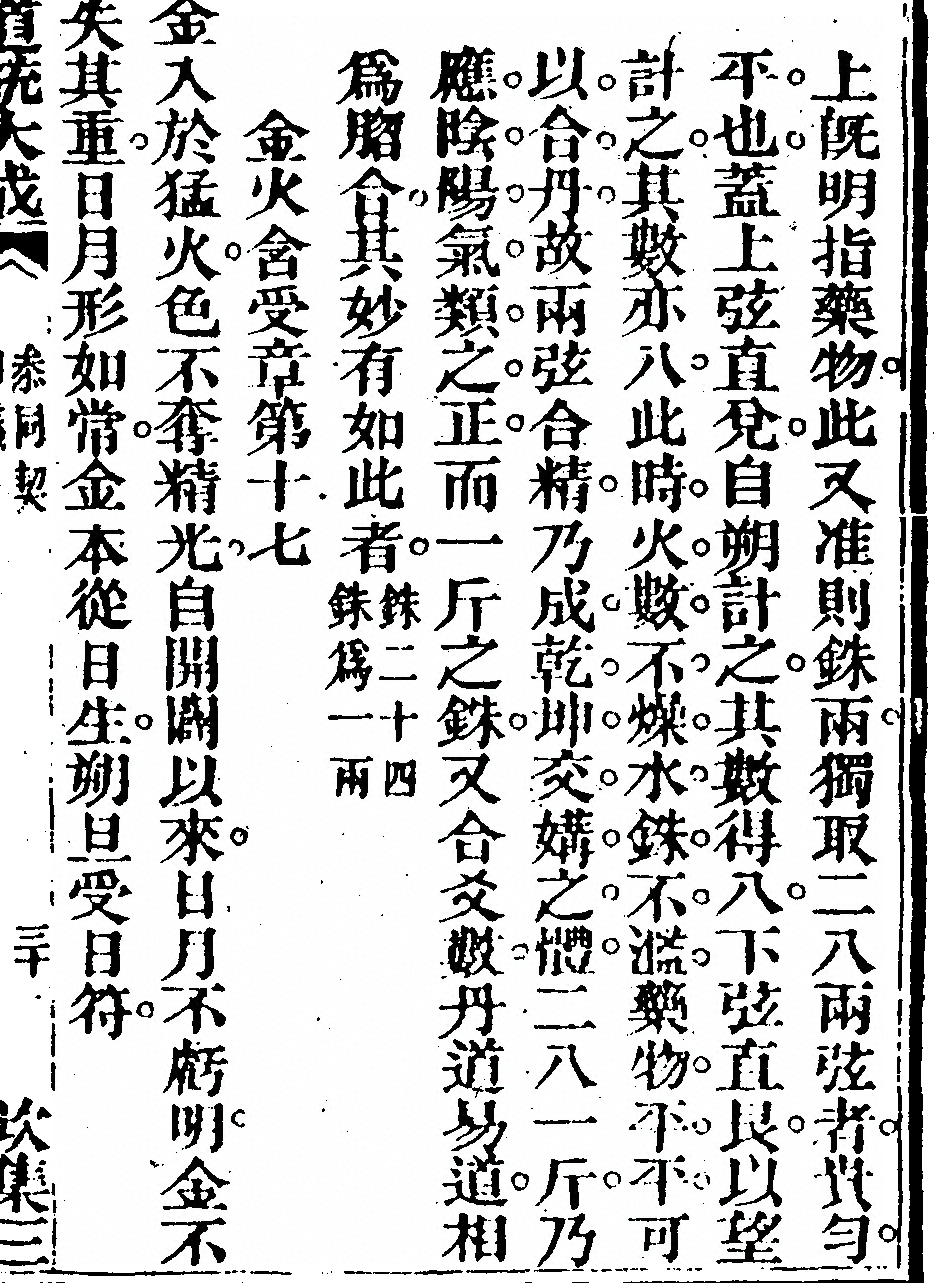 上旣明指藥物。此又准則銖兩。獨取二八兩弦者。貴勻。
平。也。蓋上弦直兌。自朔計之。其數得八。下弦直艮。以望
計之。其數亦八。此時。火。數。不。燥。水。銖。不。濫。藥物。平。平。可
以。合。丹。故兩弦合精。乃成。乾。坤。交。媾。之。體。二八一斤。乃
應。陰。陽。氣。類。之。正。而一斤之銖。又合爻數。丹道易道。相
爲䐇合。其妙有如此者。銖二十四
銖爲一兩
金火含受章第十七
金入於猛火。色不奪精光。自開闢以來。日月不虧明。金不
失其重。日月形如常。金本從日生。朔旦受日符。
道統大成
叅同契
三十
坎集三